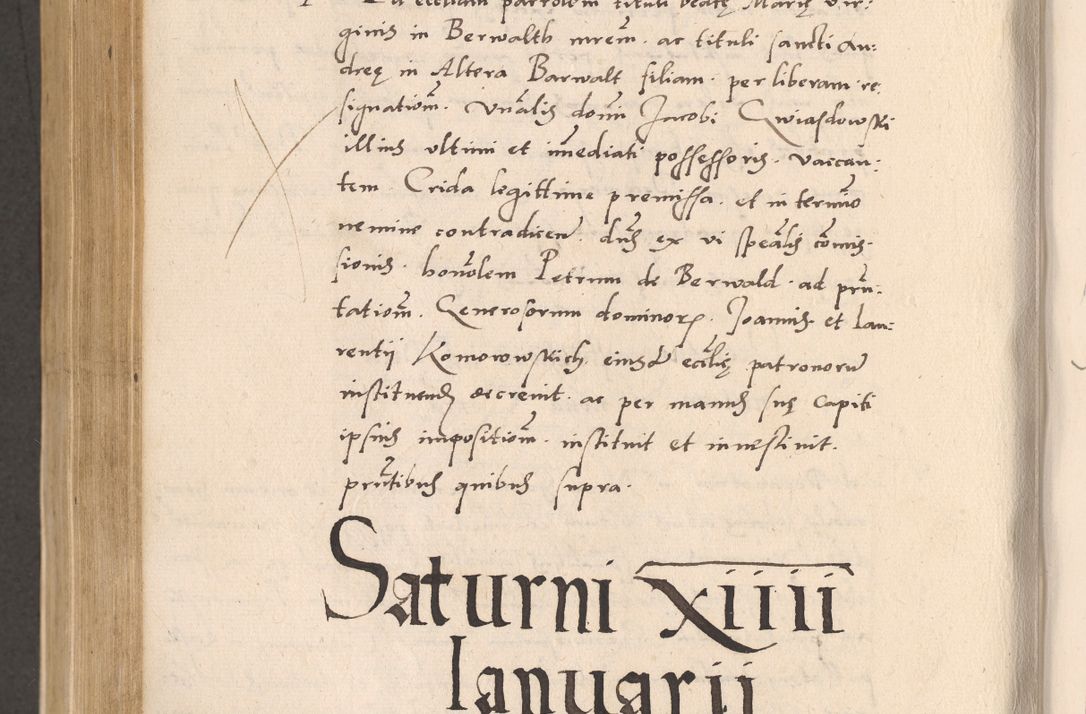 Ad eccliam parrolem tituli beatę Marię Vir:
ginis in Berwalth mrem. ac tituli sancti An:
dreę in Altera Barwalt filiam. per liberam re:
signationem. Vnalis domini Jacobi Gwiasdowski
illius vltimi et imediati possessoris. vaccan:
tem. Crida legittime premissa. et in termino
nemine contradicen. dns ex vi spealis comis:
sionis. honolem Petrum de Berwald. ad prn:
tationem. Generosorum dominorum. Joannis et Lau:
rentii Komorowskich. eiusd ecclię patronorum
instituend decreuit. ac per manus suę capiti
ipsius impositionem. instituit et inuestiuit.
prntibus quibus supra.
Saturni xiiii
Ianuarii